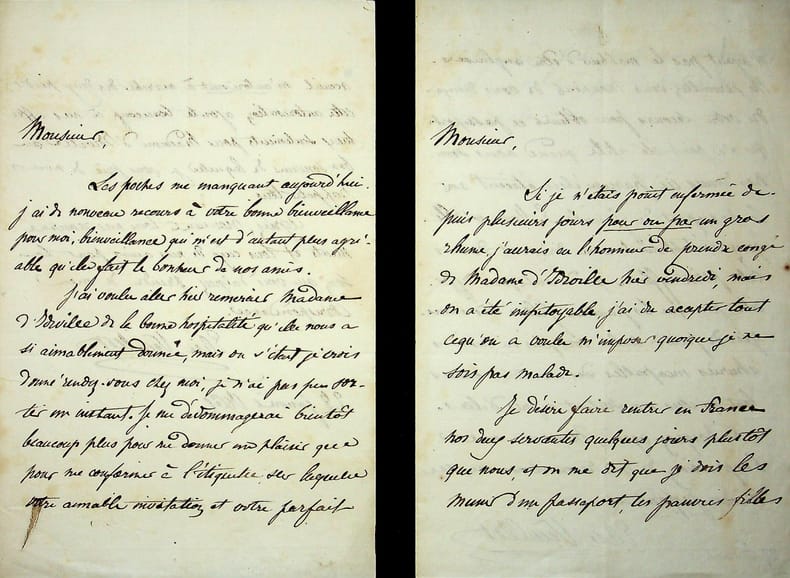 Monsieur,
Les poches me manquant aujourd'hui.
j'ai de nouveau recours à votre bonne bienveillance
pour moi, bienveillance qui m'est d'autant plus agré-
able qu'elle fait le bonheur de nos amis.
J'ai voulu aller hier remercier Madame
d'Idreville de la bonne hospitalité qu'elle nous a
si aimablement donnée, mais on s'était je crois
donné rendez-vous chez moi, je n'ai pas pu sor-
tir un instant. Je me dédommagerai bientôt
beaucoup plus pour me donner un plaisir que
pour me conformer à l'étiquette, sur laquelle
votre aimable invitation, et votre parfait
Monsieur,
Si je n'étais point enfermée de-
puis plusieurs jours pour ou par un gros
rhume, j'aurais eu l'honneur de prendre congé
de Madame d'Idreville hier vendredi, mais
on a été impitoyable j'ai du accepter tout
cequ'on a voulu m'imposer quoique je ne
sois pas malade.
Je désire faire rentrer en France
nos deux servantes quelques jours plustôt
que nous, et on me dit que je dois les
munir d'un passaport, les pauvres filles